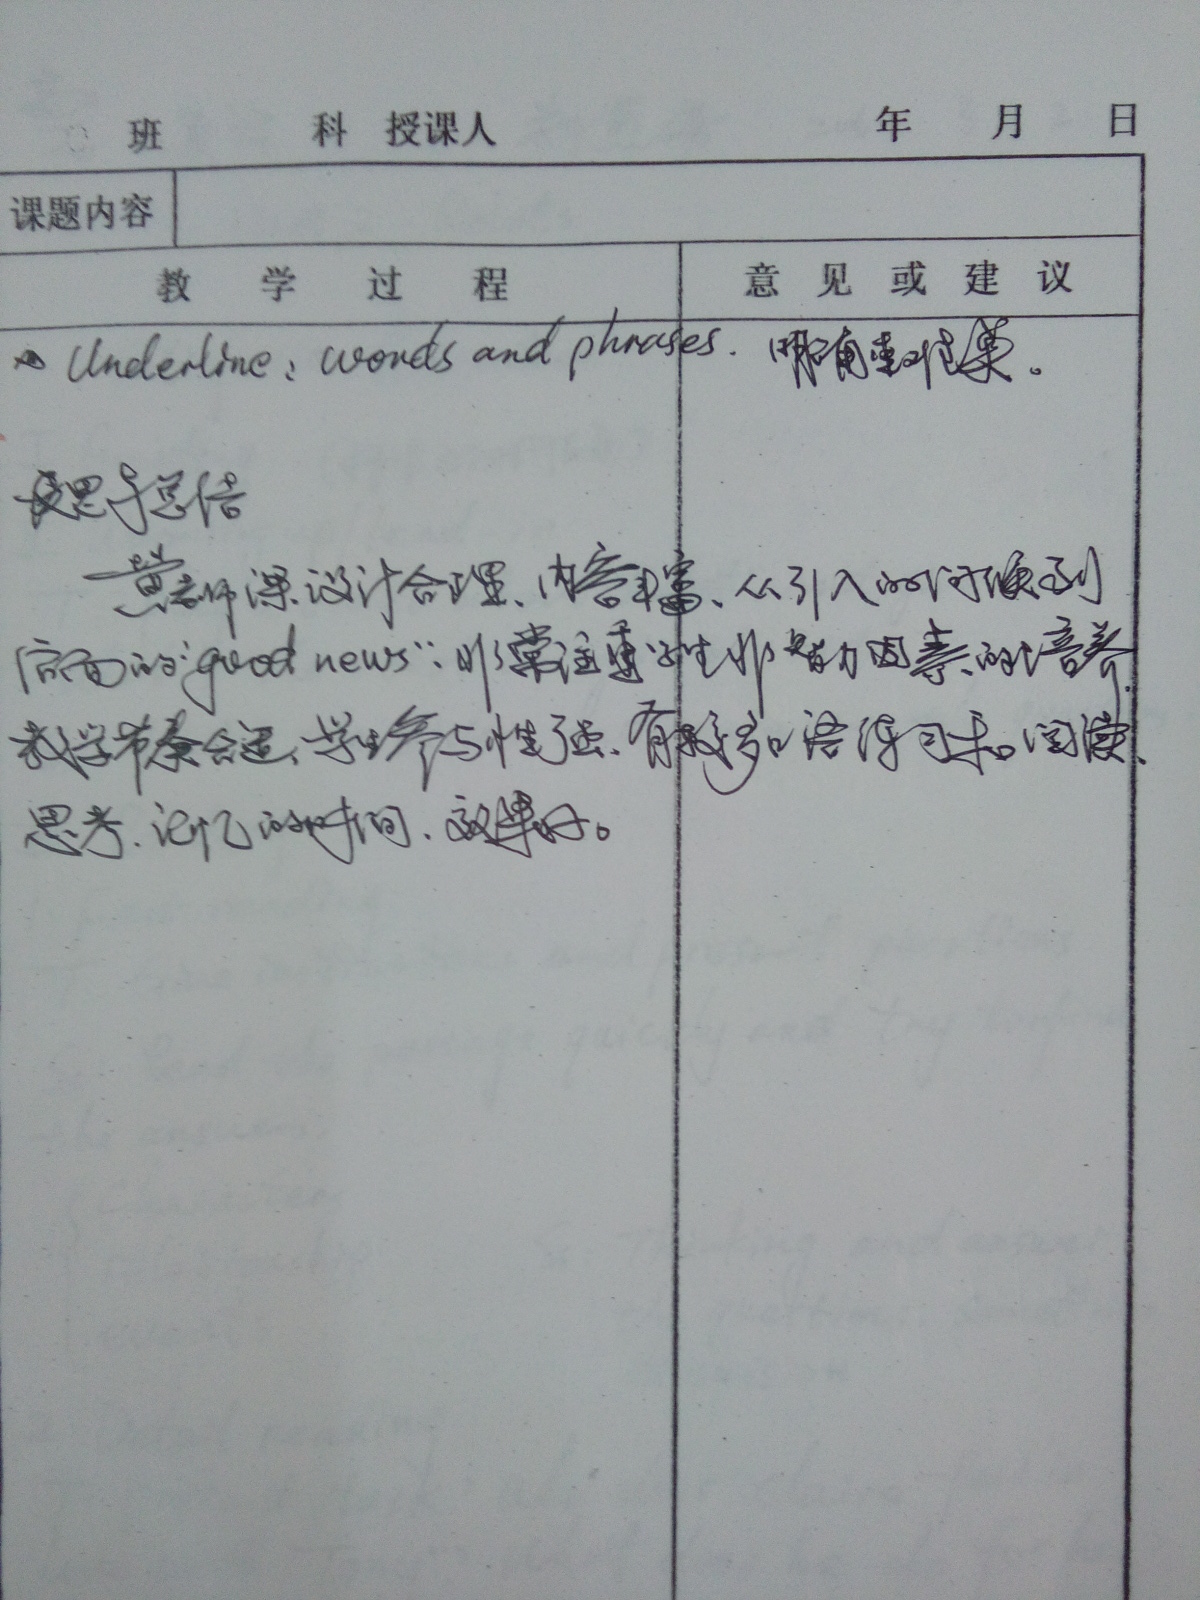 班 科 授课人 年 月 日
课题内容
教 学 过 程 意 见 或 建 议
Underline: words and phrases. 明确重难点。
反思与总结
黄老师课设计合理、内容丰富、从引入的时候到
后面的"good news"：非常注重学生非智力因素的培养.
教学节奏合适、学生参与性强、有较多口语练习和阅读、
思考、记忆的时间、效果好。